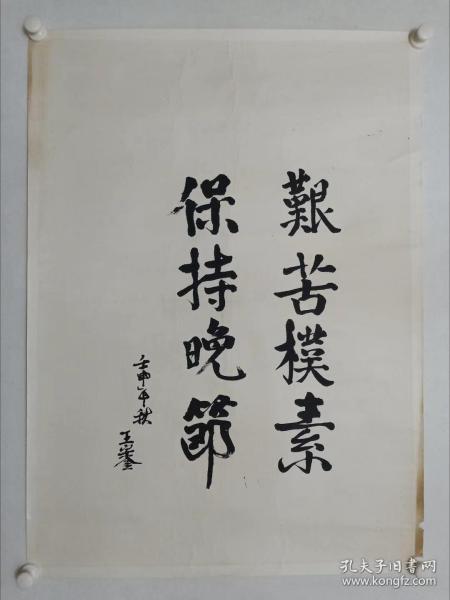 艱苦樸素
保持晚節
壬申年秋
王
孔夫子旧书网
www.kongfz.com